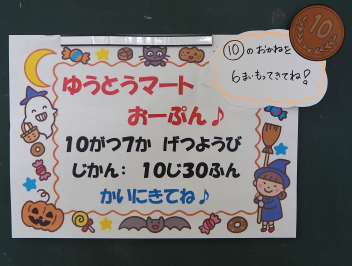 ゆうとうマート
おーぷん♪
10がつ7か げつようび
じかん： 10じ30ふん
かいにきてね♪
⑩のおかねを
6まいもってきてね!
10